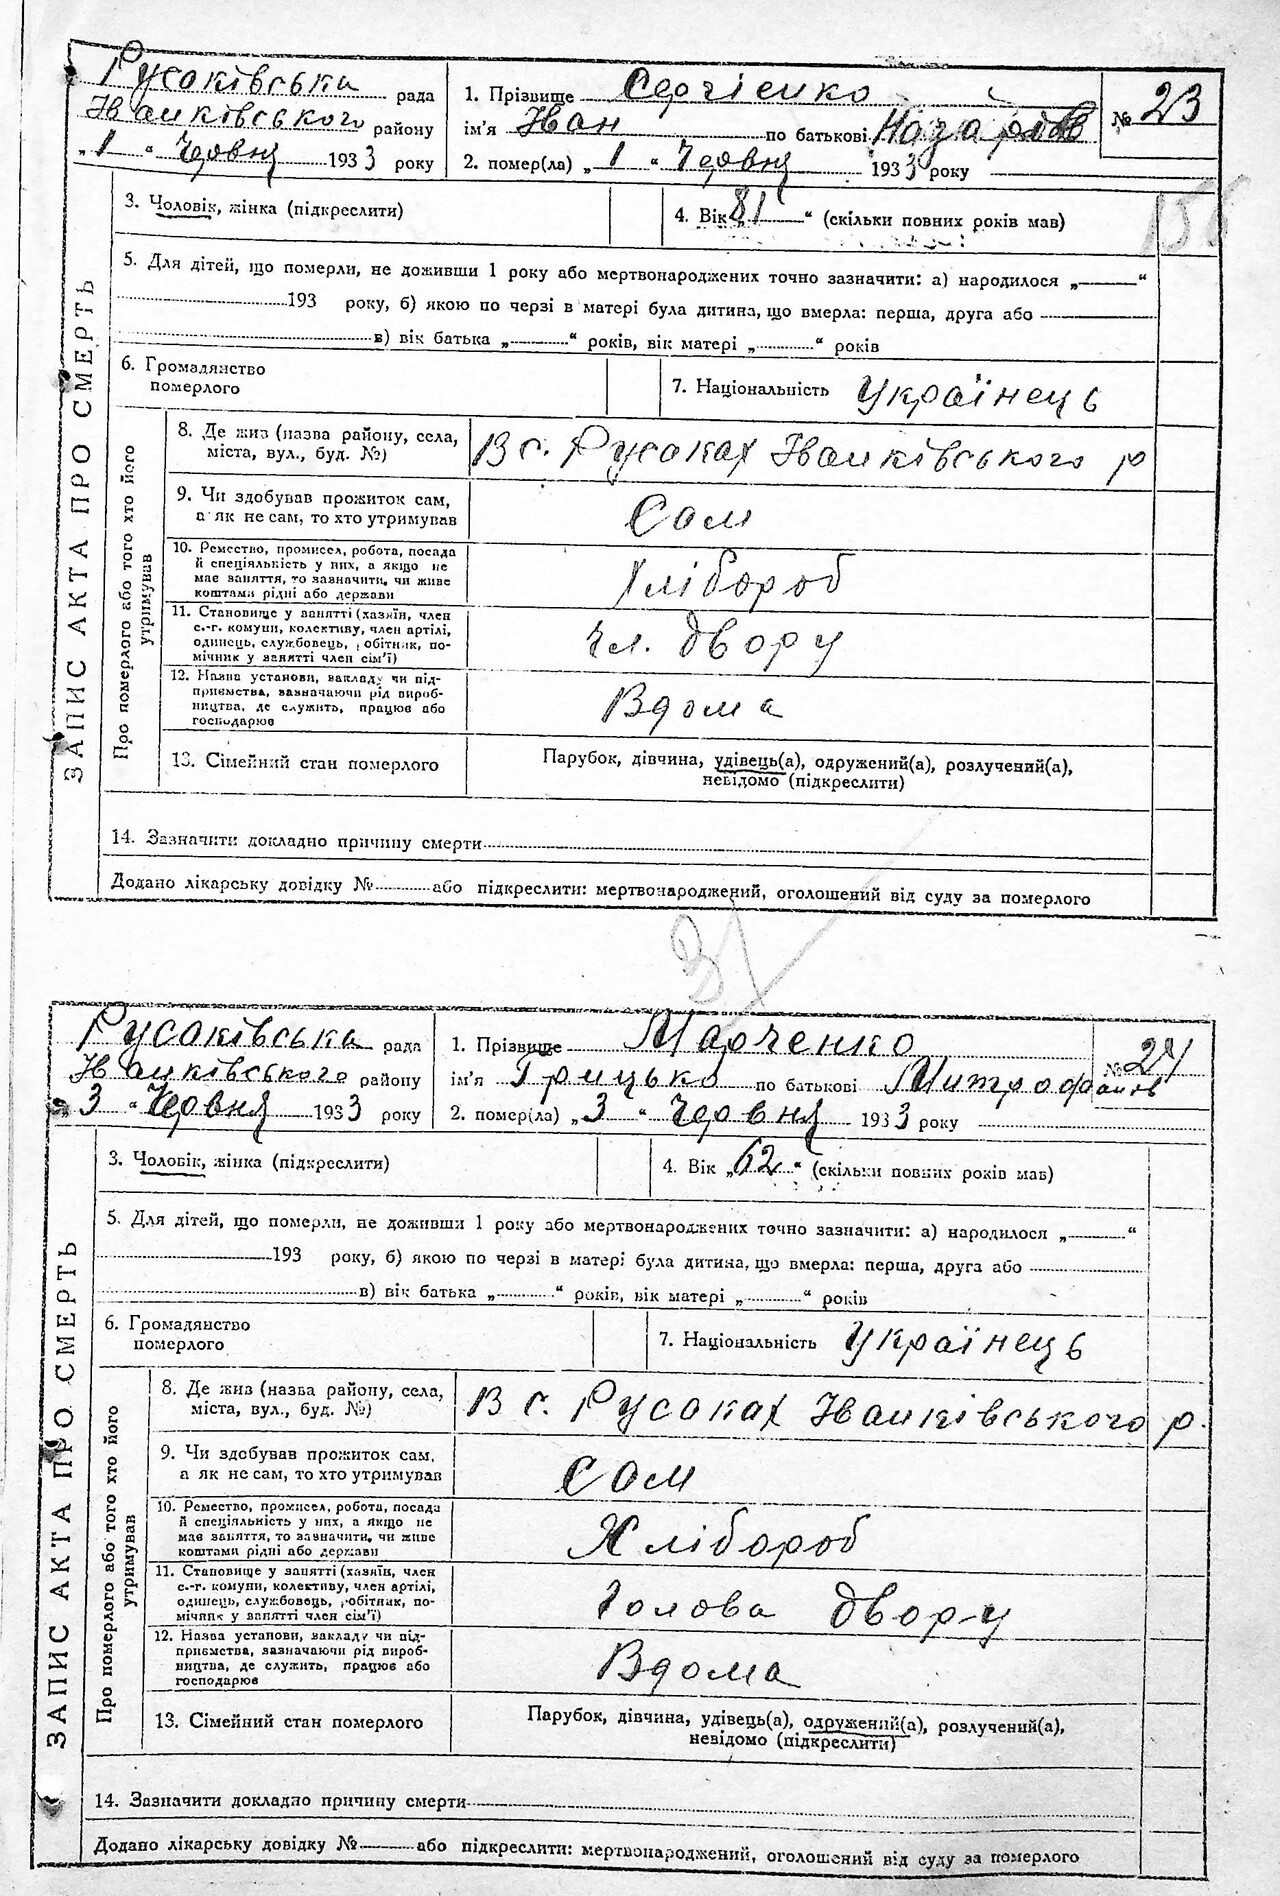 Русаківська рада
Іванківського району
„1“ Червня 1933 року
1. Прізвище Сергієнко
ім'я Іван по батькові Назарів
2. помер(ла) „1“ Червня 1933 року
№ 23
156
ЗАПИС АКТА ПРО СМЕРТЬ
3. Чоловік, жінка (підкреслити)
4. Вік „81“ (скільки повних років мав)
5. Для дітей, що померли, не доживши 1 року або мертвонароджених точно зазначити: а) народилося „ “
193 року, б) якою по черзі в матері була дитина, що вмерла: перша, друга або
в) вік батька „ “ років, вік матері „ “ років
6. Громадянство
померлого
7. Національність Українець
Про померлого або того хто його
утримував
8. Де жив (назва району, села,
міста, вул., буд. №)
В с. Русаках Іванківського р
9. Чи здобував прожиток сам,
а як не сам, то хто утримував
Сам
10. Ремество, промисел, робота, посада
й спеціяльність у них, а якщо не
має заняття, то зазначити, чи живе
коштами рідні або держави
Хлібороб
11. Становище у занятті (хазяїн, член
с.-г. комуни, колективу, член артілі,
одинець, службовець, робітник, по-
мічник у занятті член сім'ї)
Чл. двору
12. Назва установи, закладу чи під-
приємства, зазначаючи рід вироб-
ництва, де служить, працює або
господарює
Вдома
13. Сімейний стан померлого
Парубок, дівчина, удівець(а), одружений(а), розлучений(а),
невідомо (підкреслити)
14. Зазначити докладно причину смерти
Додано лікарську довідку № або підкреслити: мертвонароджений, оголошений від суду за померлого
Русаківська рада
Іванківського району
„3“ Червня 1933 року
1. Прізвище Марченко
ім'я Грицько по батькові Митрофанів
2. помер(ла) „3“ Червня 1933 року
№ 24
ЗАПИС АКТА ПРО СМЕРТЬ
3. Чоловік, жінка (підкреслити)
4. Вік „62“ (скільки повних років мав)
5. Для дітей, що померли, не доживши 1 року або мертвонароджених точно зазначити: а) народилося „ “
193 року, б) якою по черзі в матері була дитина, що вмерла: перша, друга або
в) вік батька „ “ років, вік матері „ “ років
6. Громадянство
померлого
7. Національність Українець
Про померлого або того хто його
утримував
8. Де жив (назва району, села,
міста, вул., буд. №)
В с. Русаках Іванківського р.
9. Чи здобував прожиток сам,
а як не сам, то хто утримував
Сам
10. Ремество, промисел, робота, посада
й спеціяльність у них, а якщо не
має заняття, то зазначити, чи живе
коштами рідні або держави
Хлібороб
11. Становище у занятті (хазяїн, член
с.-г. комуни, колективу, член артілі,
одинець, службовець, робітник, по-
мічник у занятті член сім'ї)
Голова двору
12. Назва установи, закладу чи під-
приємства, зазначаючи рід вироб-
ництва, де служить, працює або
господарює
Вдома
13. Сімейний стан померлого
Парубок, дівчина, удівець(а), одружений(а), розлучений(а),
невідомо (підкреслити)
14. Зазначити докладно причину смерти
Додано лікарську довідку № або підкреслити: мертвонароджений, оголошений від суду за померлого